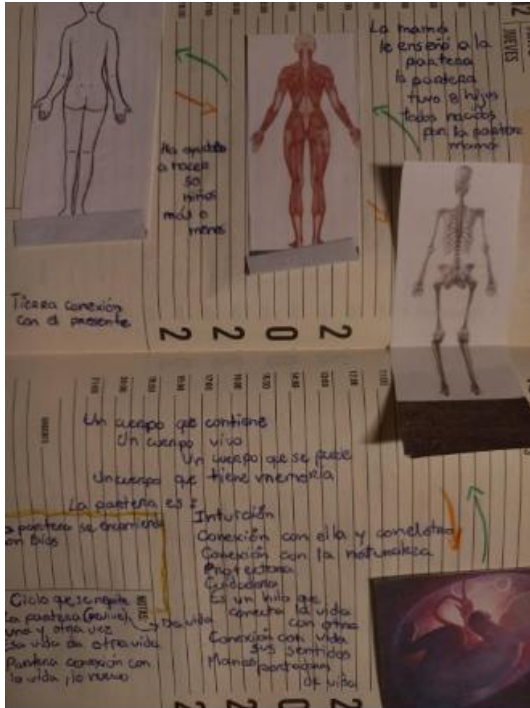 La mamá
le enseñó a la
partera
la partera
tuvo 8 hijos
todos nacidos
por la partera
mamá
Ha ayudado
a nacer
50
niños
más o
menos
Tierra conexión
con el presente
JUEVES
2
2 2 0 2
Un cuerpo que contiene
Un cuerpo vivo
Un cuerpo que se puede
Un cuerpo que tiene memoria
La partera es:
partera se encomienda
Dios
Intuición
Conexión con ella y con el otro
Conexión con la naturaleza
Protectora
Cuidadora
Es un hilo que
conecta la vida
con otra
Conexión con vida
sus sentidos
Manos portadoras
de vida
NOTAS
Ciclo que se repite
La partera
una y otra vez
Da vida
da vida da otra vida
Partera conexión con
la vida, lo nuevo
2 2 0 2